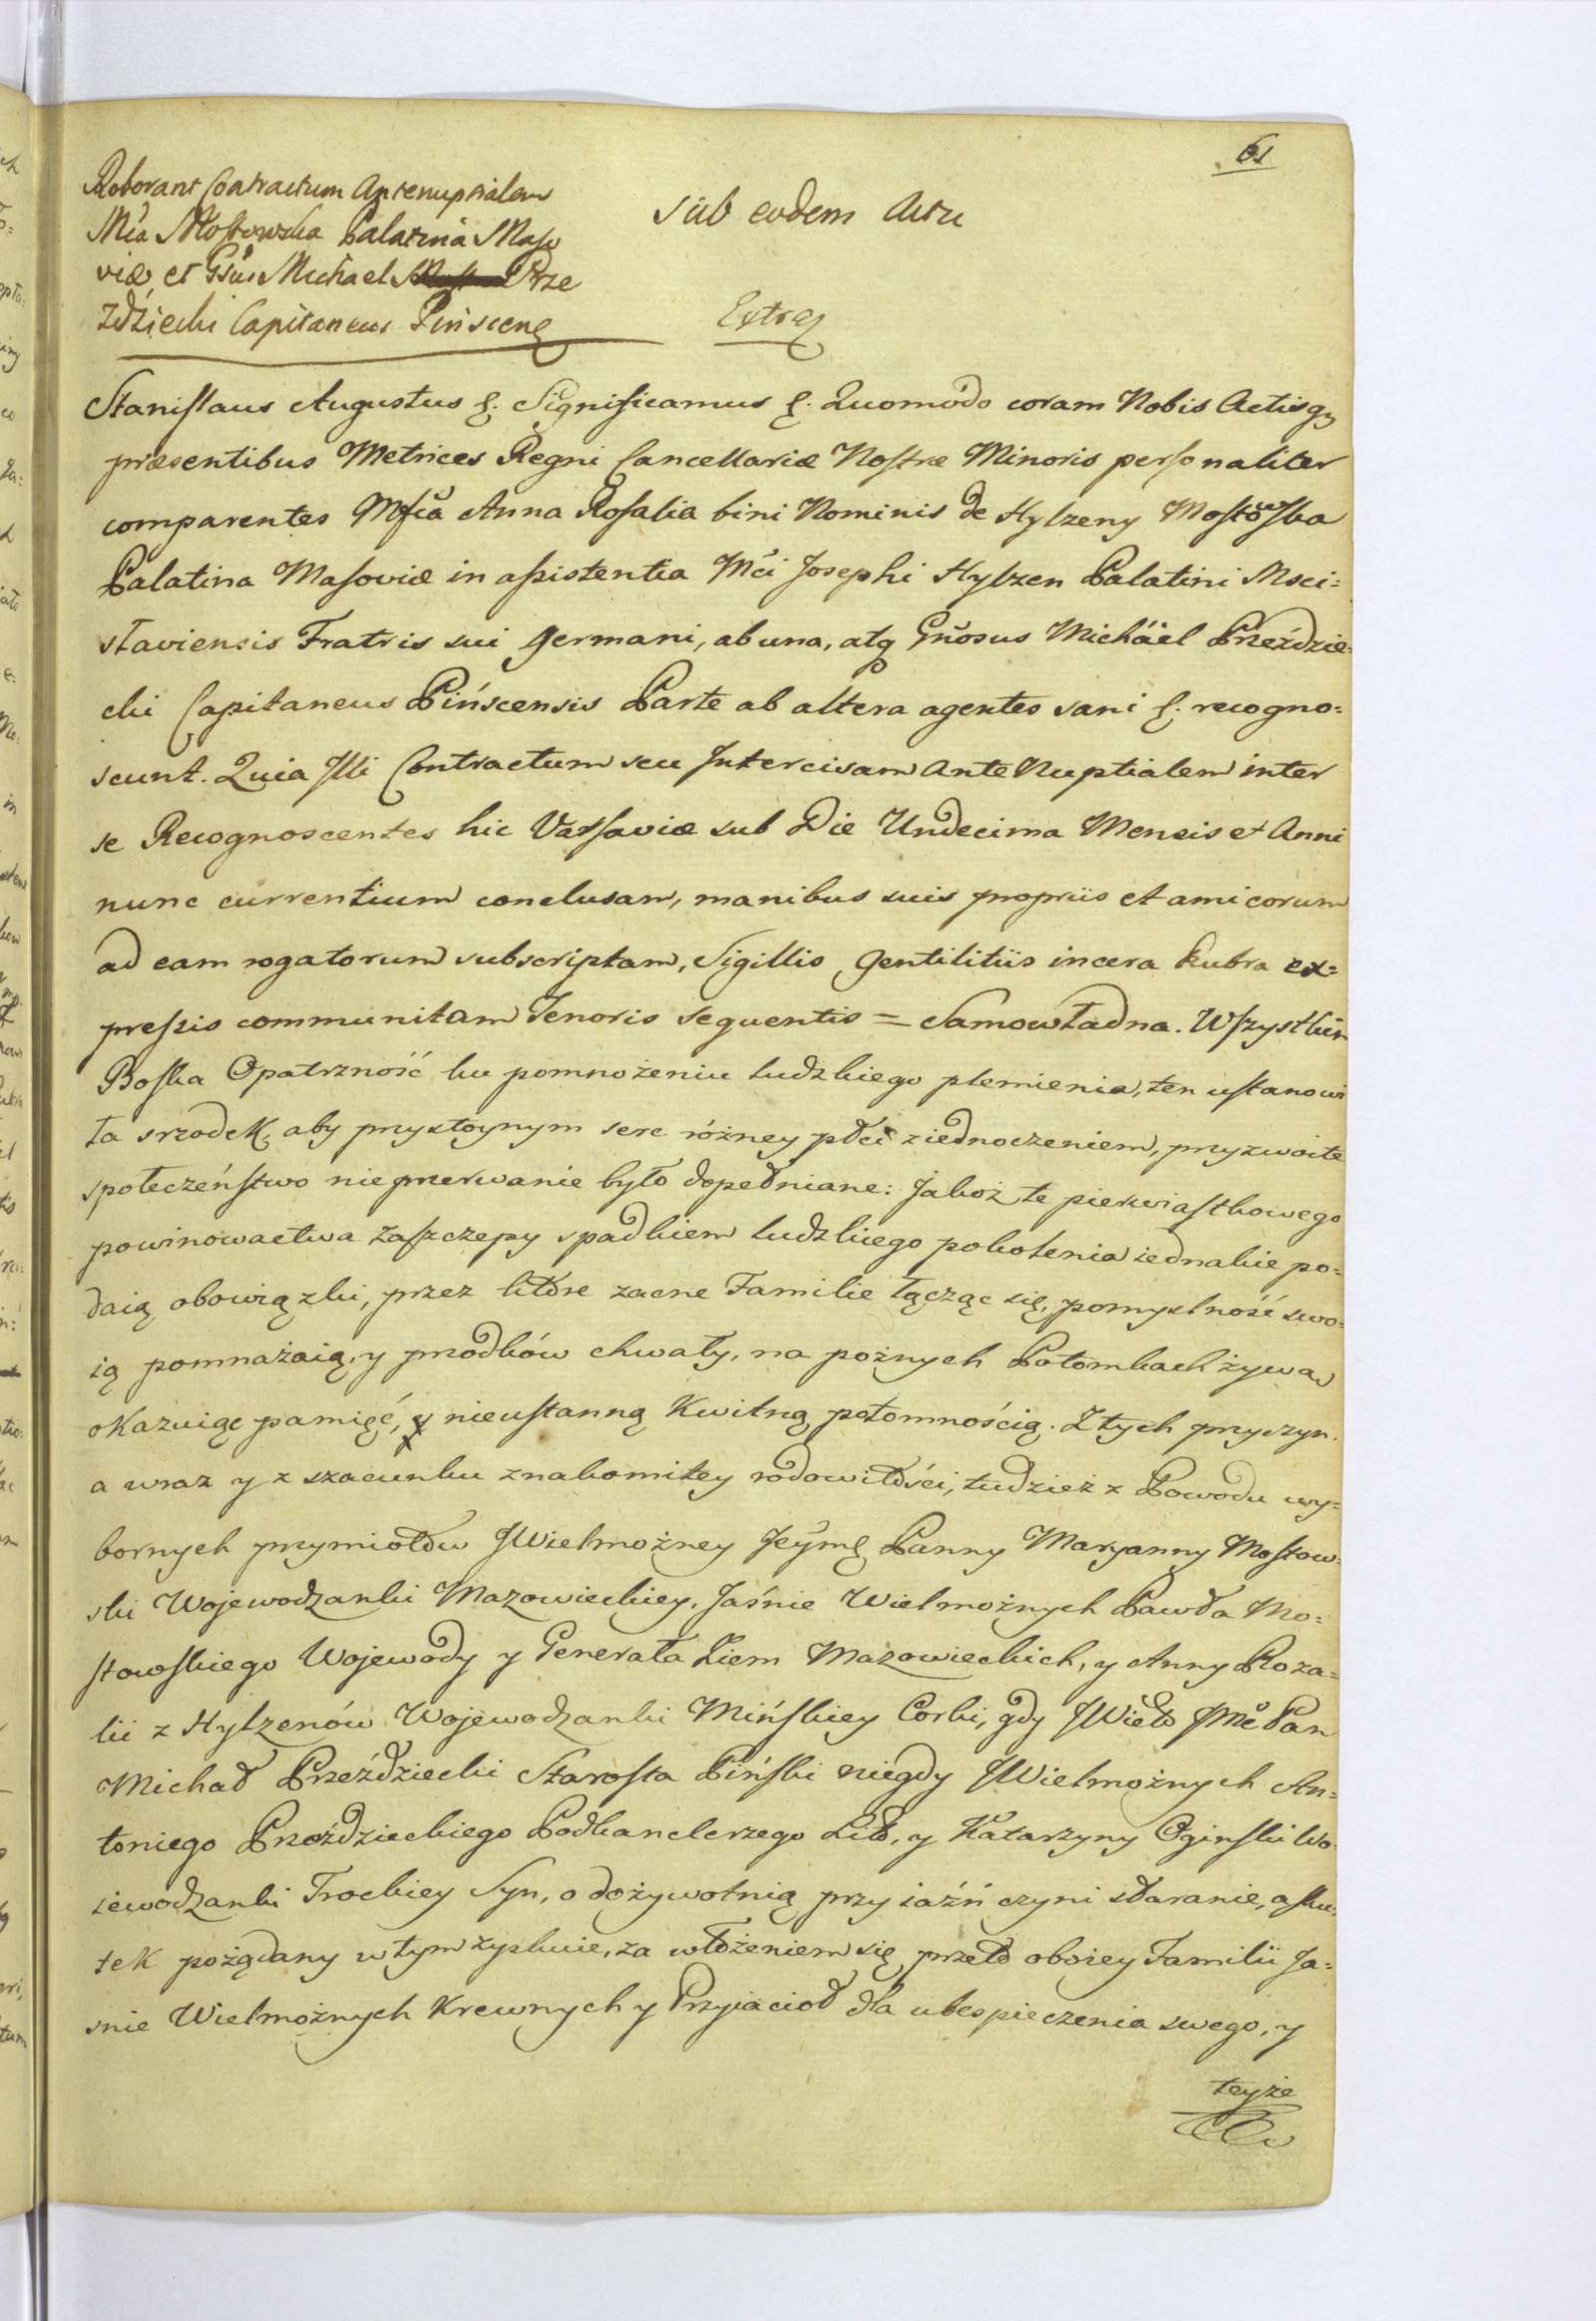 61
Roborant Contractum Antenuptialem
Mca Mostowska Palatina Maso
viæ, et Gsus Michael Prze
zdziecki Capitaneus Pinscens
Sub eodem Actu
Extra
Stanislaus Augustus &. Significamus &. Quomodo coram Nobis Actisq
præsentibus Metrices Regni Cancellariæ Nostræ Minoris personaliter
comparentes Mfca Anna Rosalia bini Nominis de Hylzeny Mostowska
Palatina Masoviæ in assistentia Mci Josephi Hylzen Palatini Msci=
slaviensis Fratris sui germani, ab una, atq Gnosus Michäel Przezdzie=
cki Capitaneus Pińscensis Parte ab altera agentes sani &. recogno=
scunt. Quia Illi Contractum seu Intercisam AnteNuptialem inter
se Recognoscentes hic Varsaviæ sub Die Undecima Mensis et Anni
nunc currentium conclusam, manibus suis propriis et amicorum
ad eam rogatorum subscriptam, Sigillis gentilitiis in cera Rubra ex=
pressis communitam Tenoris sequentis = Samowładna. Wszystkim
Boska Opatrzność ku pomnożeniu ludzkiego plemienia, ten ustanowi
ła srzodek, aby przystoynym serc różney płci ziednoczeniem, przyzwoite
społeczeństwo nieprzerwanie było dopełniane: Jakoż te pierwiastkowego
powinowactwa zaszczepy spadkiem ludzkiego pokolenia iednakie po=
daią obowiązki, przez które zacne Familie łącząc się, pomyslność swo=
ią pomnażaią, y przodków chwały, na poźnych Potomkach żywą
okazuiąc pamięć, y nieustanną Kwitną potomnością. Z tych przyczyn.
a wraz y z szacunku znakomitey rodowitości, tudzież z Powodu wy=
bornych przymiotów JWielmożney Jeymc Panny Maryanny Mostow=
ski Wojewodzanki Mazowieckiey, Jaśnie Wielmożnych Pawła Mo=
stowskiego Wojewody y Generała Ziem Mazowieckich, y Anny Roza=
lii z Hylzenów Wojewodzanki Mińskiey Corki, gdy JWielo JMc Pan
Michał Przeździecki Starosta Piński niegdy JWielmożnych An=
toniego Przeździeckiego Podkanclerzego Litō, y Katarzyny Oginski Wo=
iewodzanki Trockiey Syn, o dożywotnią przyiaźń czyni staranie, a sku=
tek pożądany w tym zyskuie, za włożeniem się przeto oboiey Familii Ja=
snie Wielmożnych Krewnych y Przyiacioł dla ubespieczenia swego, y
teyże